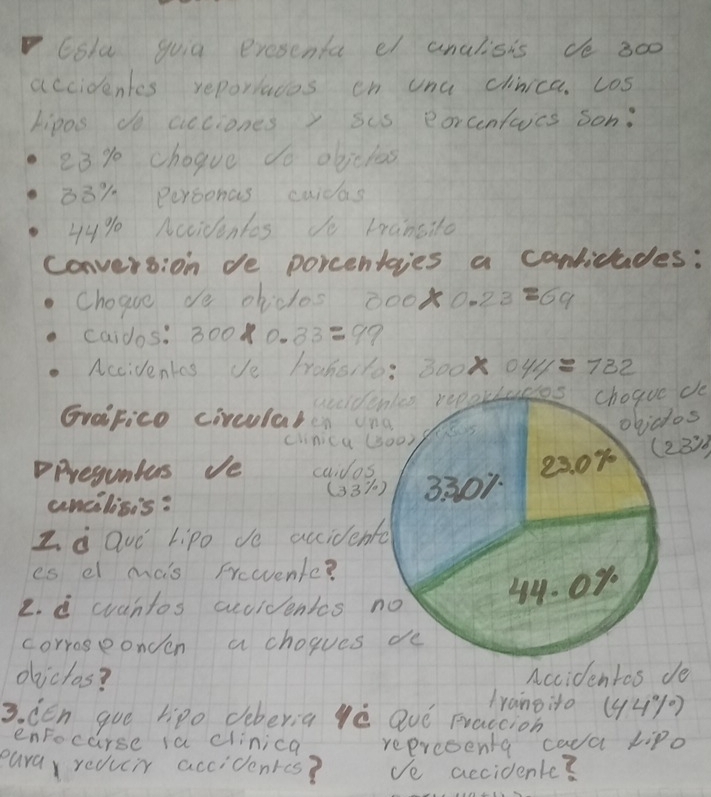 Esta guia presenta el analisis de 300
accidentes reportados en una clinica. Los
tipos de acciones y sus porcentajes son:
• 23% choque de objetos
• 33% Personas caidas
• 44% Accidentes de transito
conversión de porcentajes a cantidades:
• Choque de objetos 300 x 0.23 = 69
• caidos: 300 x 0.33 = 99
• Accidentes de transito: 300 x 044 = 132
Graifico circular
accidentes reportados
en una
clinica (300)
choque de
objetos
(23%)
caidos
(33%)
33.0%
23.0%
44.0%
Accidentes de
transito (44%)
Preguntas de
análisis:
1. ¿ Qué tipo de accidente
es el más frecuente?
2. ¿ cuántos accidentes no
corresponden a choques de
objetos?
3. ¿En que tipo deberia
enfocarse la clinica
para reducir accidentes?
4 ¿ Qué Fracción
representa cada tipo
de accidente?